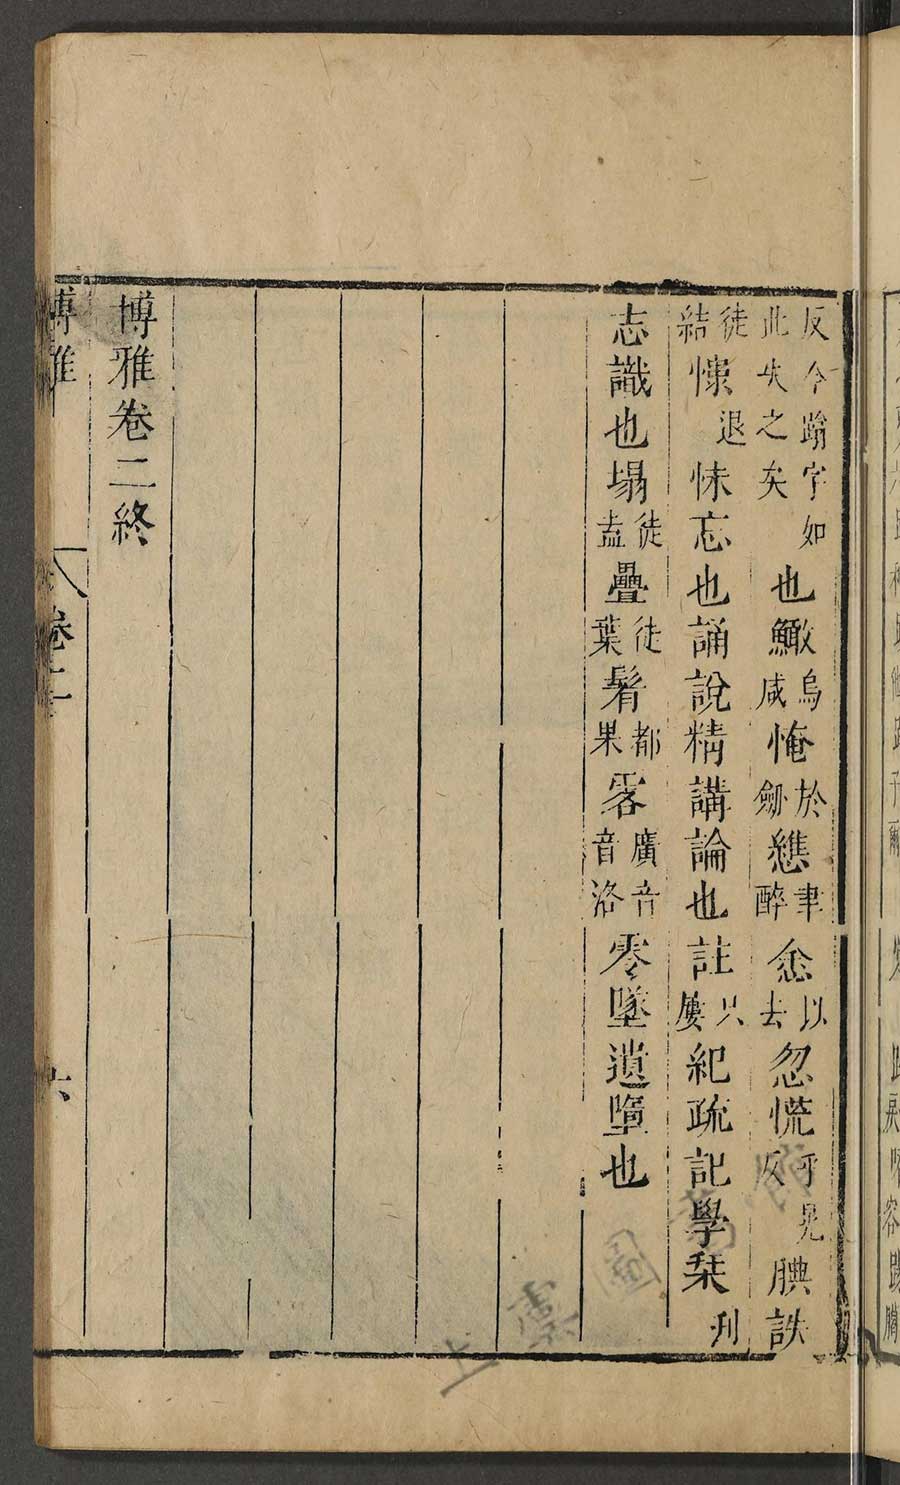 反今蹹字如此失之矣也鱤烏咸㤿於劔聿醉悆以去忽慌乎晃反腆詄
徒結退忘也誦說精講論也註只屢紀疏記學栞刊
志識也塌徒盍疊徒葉鬌都果廣音音洛零墜遺墮也
博雅卷二終
博雅 卷二 六